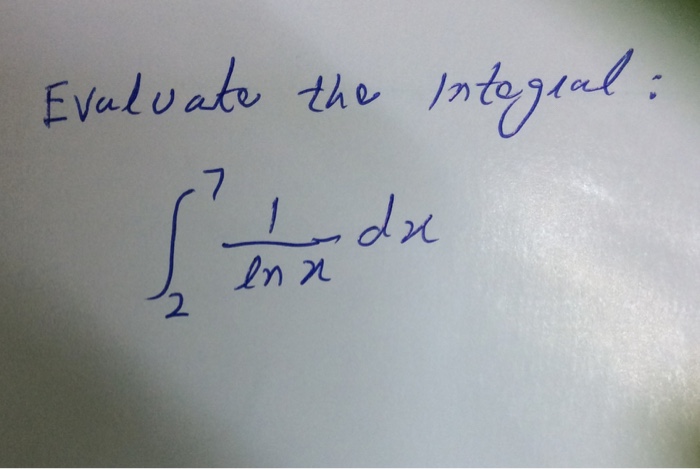 Evaluate the Integral:
∫₂⁷ 1/ln x dx